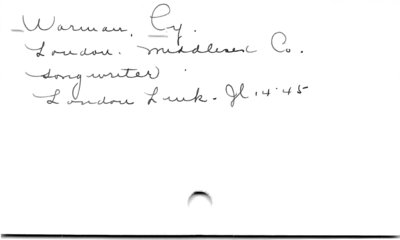 Warman, Cy.
London. Middlesex Co.
songwriter
London Link. Jl. 14. 45